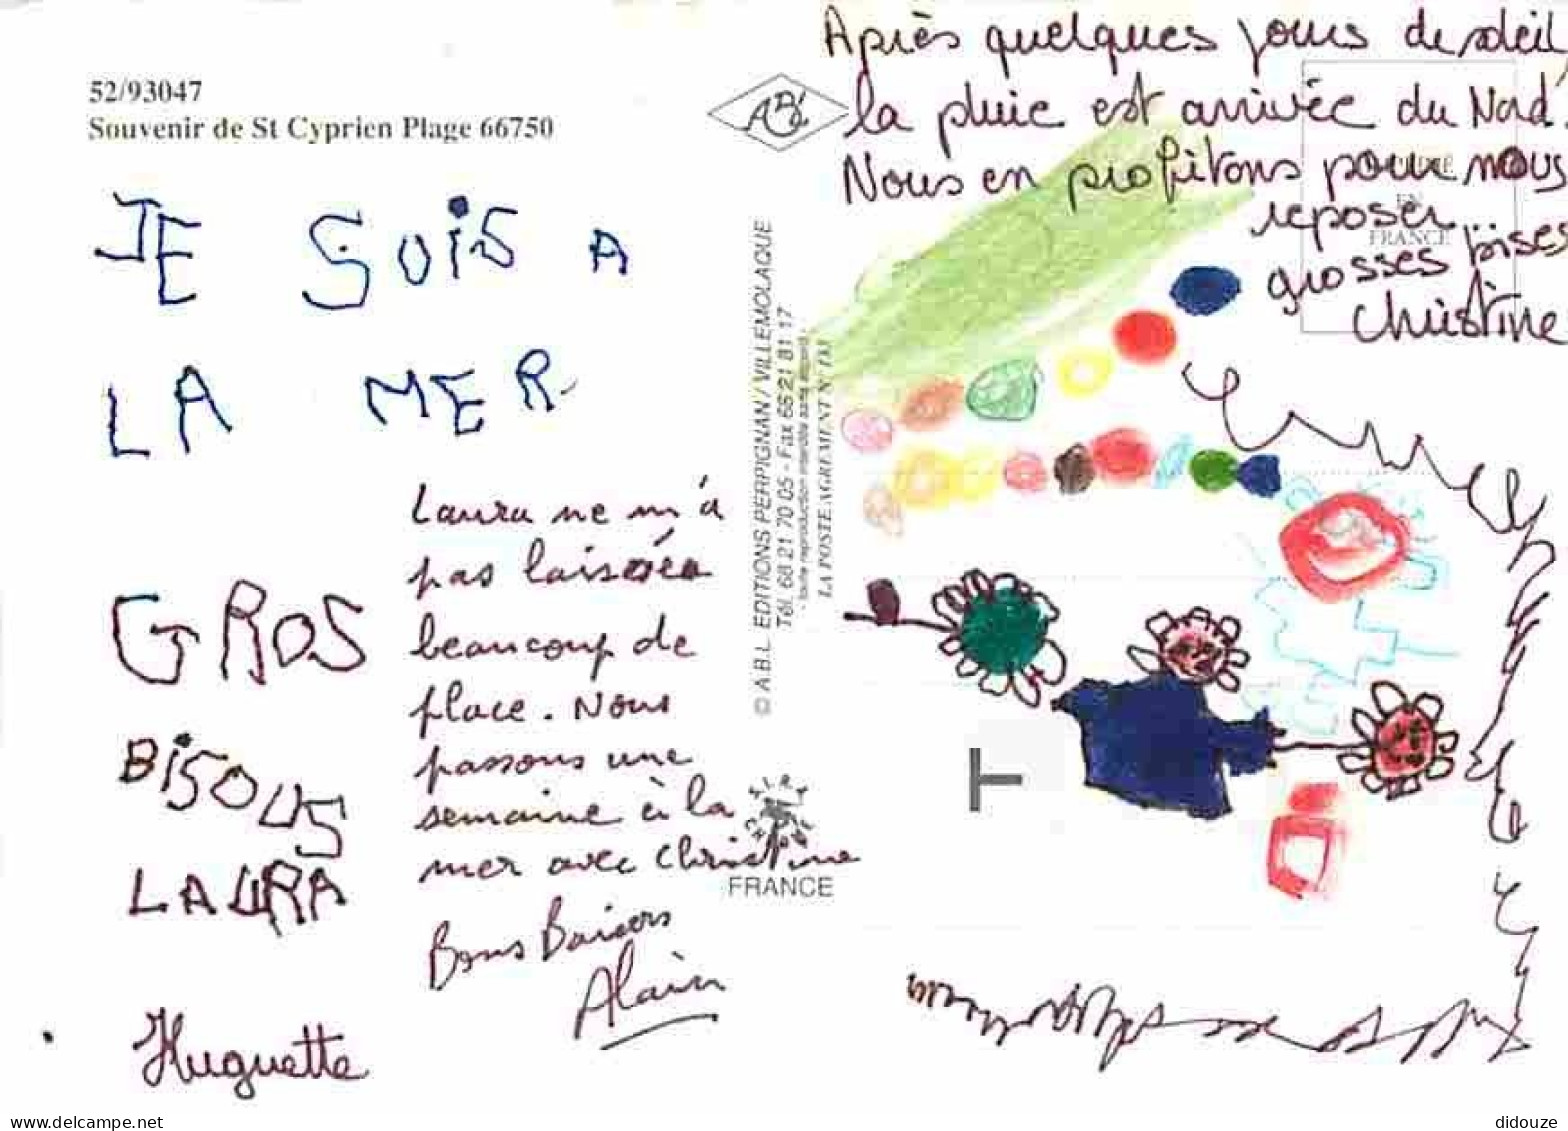 52/93047
Souvenir de St Cyprien Plage 66750
JE SUiS A
LA MER
GROS
BiSOUS
LAURA
Huguette
Laura ne m'a
pas laissée
beaucoup de
place. Nous
passons une
semaine à la
mer avec Christine
Bons Baisers
Alain
ABL
© A.B.L. EDITIONS PERPIGNAN / VILLEMOLAQUE
Tél. 68 21 70 05 - Fax 68 21 81 17
- toute reproduction interdite sans accord -
LA POSTE AGREMENT N°
FRANCE
Après quelques jours de soleil
la pluie est arrivée du Nord.
Nous en profitons pour nous
reposer
grosses bises
Christine
EN
FRANCE
T
delcampe.net
didouze